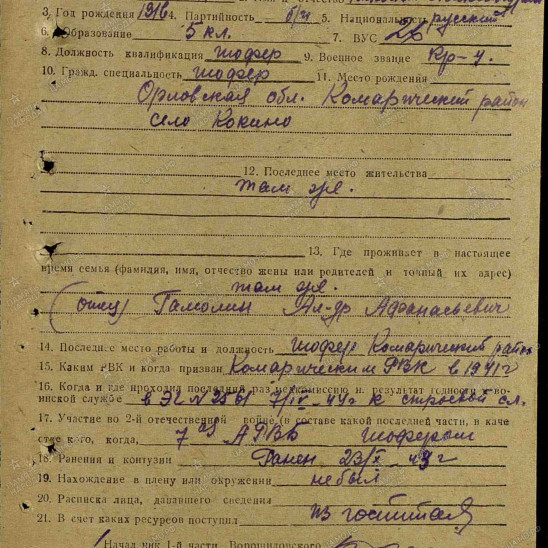 3. Год рождения 1916 4. Партийность б/п 5. Национальность русский
6. Образование 5 кл. 7. ВУС 26
8. Должность квалификация шофер 9. Военное звание Кр-ц.
10. Гражд. специальность шофер 11. Место рождения
Орловская обл. Комаричский район
село Кокино
12. Последнее место жительства
там же.
13. Где проживает в настоящее
время семья (фамилия, имя, отчество жены или родителей и точный их адрес)
там же.
(отец) Гамолин Ал-др Афанасьевич
14. Последнее место работы и должность шофер Комаричский район
15. Каким РВК и когда призван Комаричским РВК в 1941 г
16. Когда и где проходил последний раз медкомиссию и результат годности к во-
инской службе в ЭГ № 2561 7/IV-44г к строевой сл.
17. Участие во 2-й отечественной войне (в составе какой последней части, в каче
стве кого, когда, 7 АРВБ шофером
18. Ранения и контузии Ранен 23/X-43г
19. Нахождение в плену или окружении не был
20. Расписка лица, дававшего сведения
21. В счет каких ресурсов поступил из госпиталя
Начальник 1-й части Ворошиловского